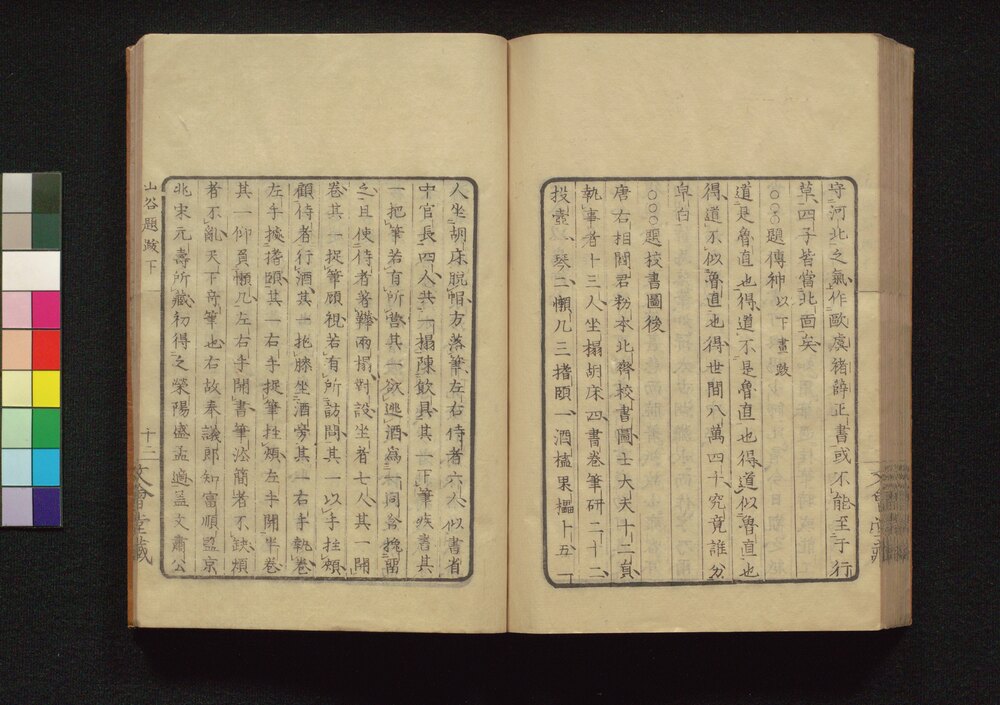 守河北之氣作歐虞褚薛正書或不能至于行
草四子皆當北面矣
○○○題傳神 以下畫跋
道是魯直也得道不是魯直也得道似魯直也
得道不似魯直也得世間八萬四十究竟誰分
皁白
○○○題挍書圖後
唐右相閻君粉本北齊校書圖士大夫十二員
執事者十三人坐榻胡床四書卷筆研二十二
投壺一琴二懶几三搘頤一酒榼果樞十五一
人坐胡床脫帽方落筆左右侍者六人似書省
中官長四人共一榻陳飲具其一下筆疾書其
一把筆若有所營其一欲逃酒為一同舍挽留
之且使侍者著鞾兩榻對設坐者七人其一開
卷其一捉筆顧視若有所訪問其一以手拄頰
顧侍者行酒其一抱膝坐酒旁其一右手執卷
左手據搘頤其一右手捉筆拄頰左手開半卷
其一仰負懶几左右手開書筆法簡者不缺煩
者不亂天下奇筆也右故奉議郎知富順監京
兆宋元壽所藏初得之滎陽盛孟適盖文肅公
山谷題跋下
十三
文會堂藏
文會堂藏